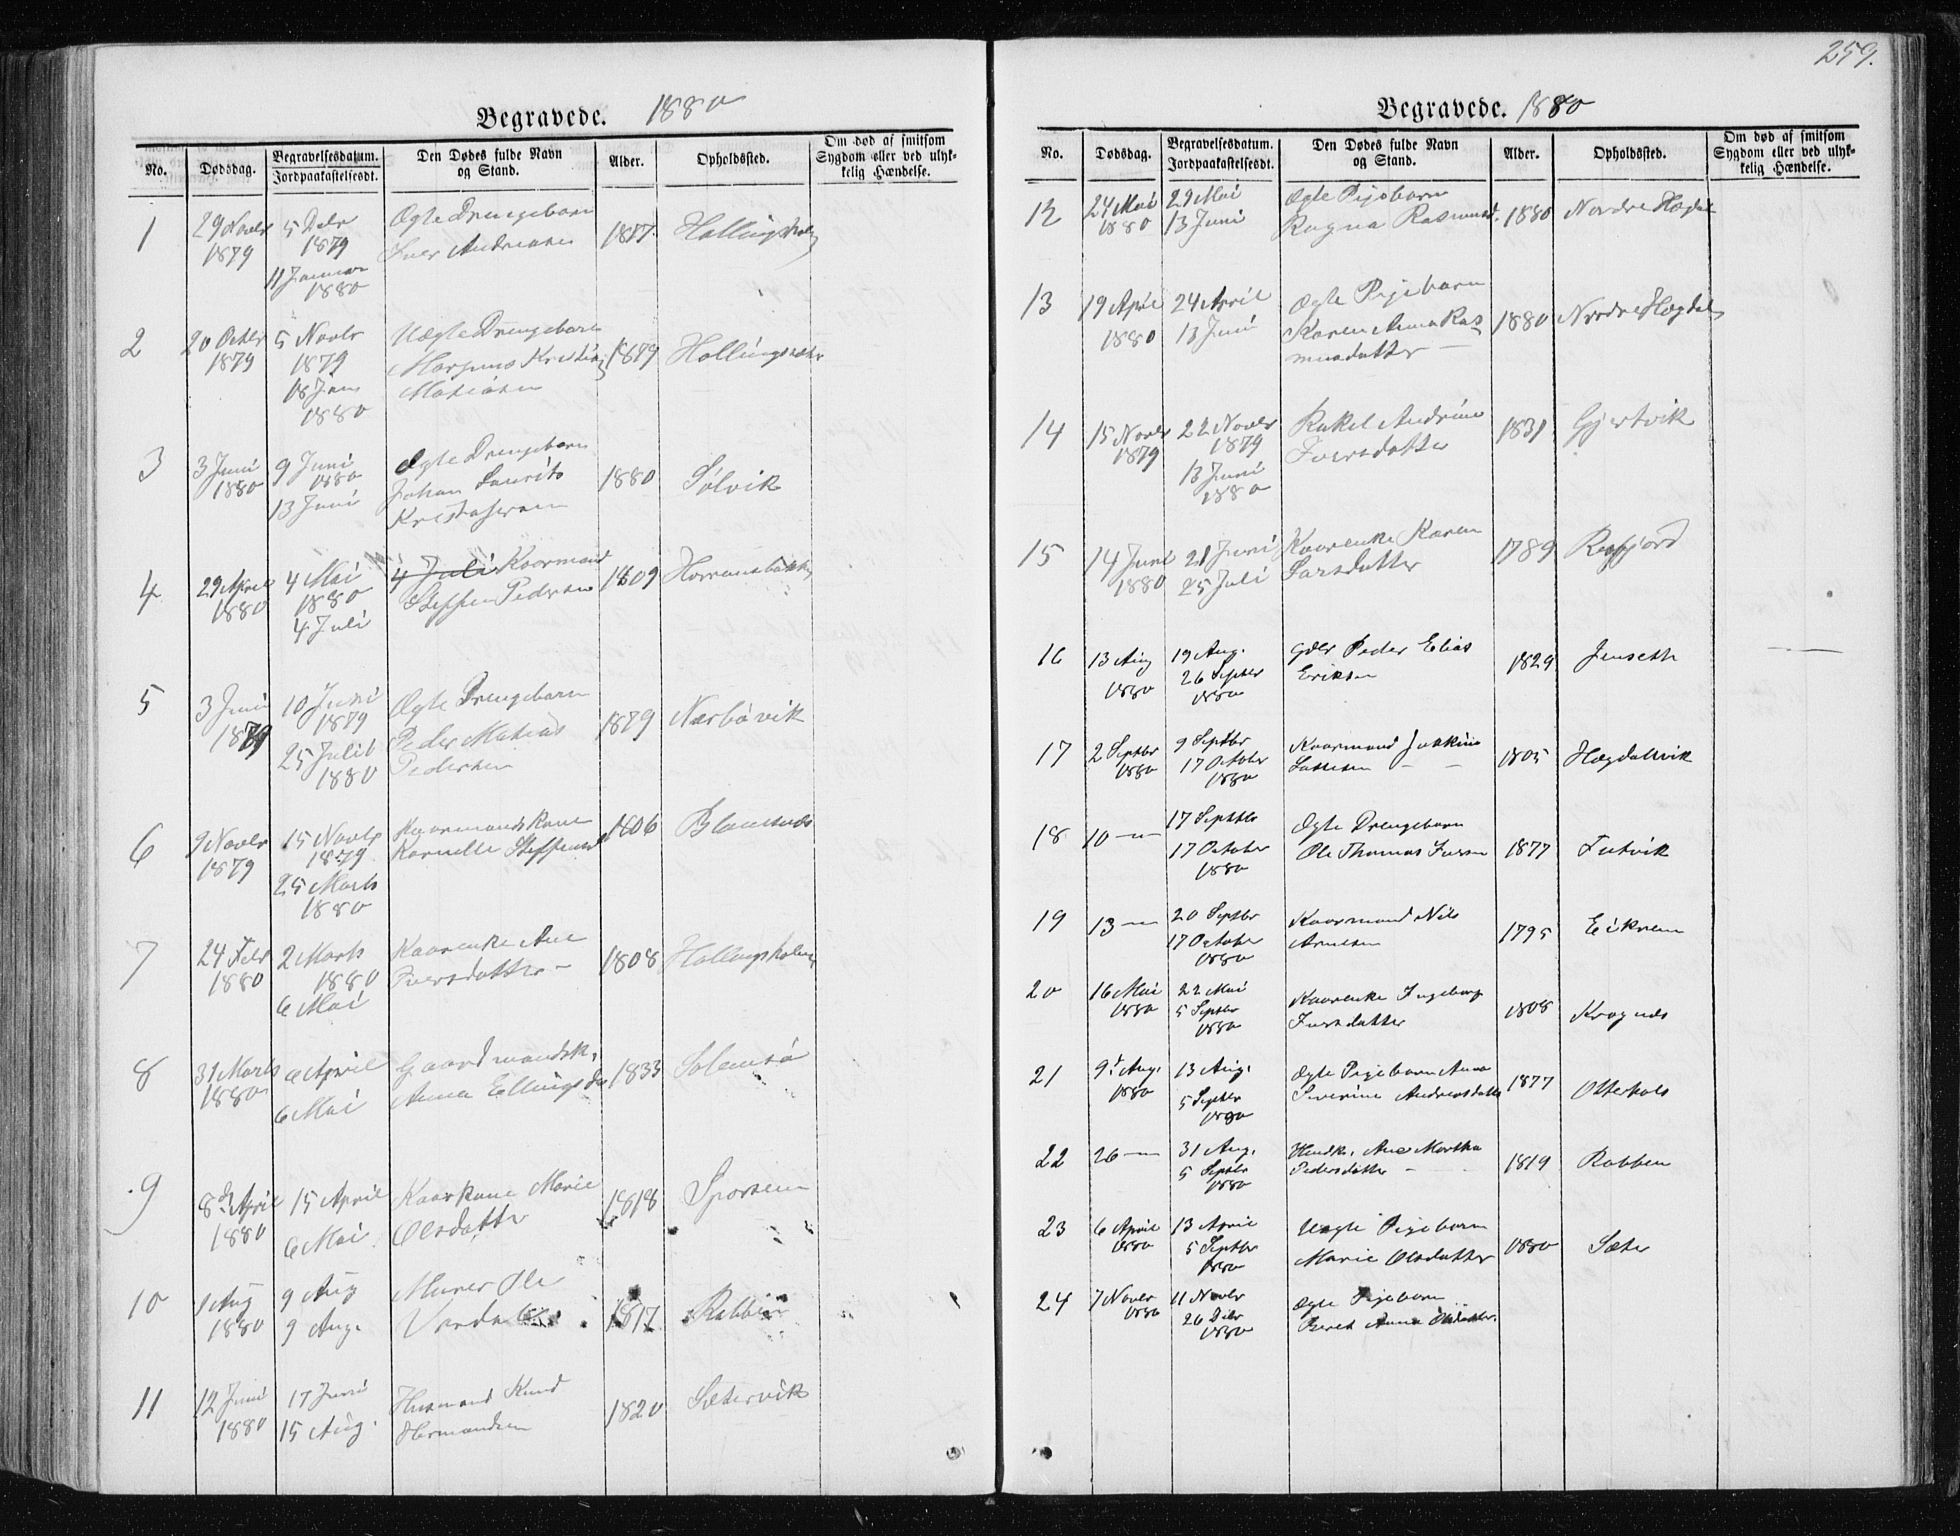 Begravede. 1880
No.
Dødsdag.
Begravelsesdatum.
Jordpaakastelsesdt.
Den Dødes fulde Navn
og Stand.
Alder.
Opholdssted.
Om død af smitsom
Sygdom eller ved ulyk-
kelig Hændelse.
1
29 Novbr
1879
5 Debr
1879
11 Januar
1880
Ægte Drengebarn
Iver Andreasen
1877
Hallingsholm
2
20 Octbr
1879
5 Novbr
1879
18 Jan
1880
Uægte Drengebarn
Kristian
1879
3
3 Juni
1880
9 Juni
1880
13 Juni
Ægte Drengebarn
Johan Laurits
Kristofersen
1880
Sølvik
4
29 April
1880
4 Mai
1880
4 Juli
4 Juli Kaarmand
Steffen Pedersen
1809
5
3 Juni
1879
10 Juni
1879
25 Juli
1880
Ægte Drengebarn
Peder Matias
Pedersen
1879
Nærbøvik
6
9 Novbr
1879
15 Novbr
1879
25 Marts
1880
Kaarmands Kone
Steffensd
1806
7
24 Febr
1880
2 Marts
1880
6 Mai
Kaarenke Ane
Iversdatter
1808
Hallingsholm
8
31 Marts
1880
6 April
6 Mai
Gaardmandsk.
Anna Ellingsd
1833
Solemsø
9
8de April
1880
15 April
6 Mai
Kaarkone Marie
Olsdatter
1818
10
1 Aug
1880
9 Aug
9 Aug.
Murer Ole
1817
Rabben
11
12 Juni
1880
17 Juni
15 Aug.
Husmand Knud
Hermandsen
1820
Sætervik
259.
Begravede. 1880
No.
Dødsdag.
Begravelsesdatum.
Jordpaakastelsesdt.
Den Dødes fulde Navn
og Stand.
Alder.
Opholdssted.
Om død af smitsom
Sygdom eller ved ulyk-
kelig Hændelse.
12
24 Mai
1880
29 Mai
13 Juni
Ægte Pigebarn
Ragna Rasmusd.
1880
Nordre Hægdal
13
19 April
1880
24 April
13 Juni
Ægte Pigebarn
Karen Anna Ras
musdatter
1880
Nordre Hægdal
14
15 Novbr
1879
22 Novbr
1879
13 Juni
1880
Rakel Andrine
Iversdatter
1831
Gjertvik
15
14 Juni
1880
21 Juni
25 Juli
Kaarenke Karen
Larsdatter
1789
16
13 Aug
1880
19 Aug.
26 Septbr
1880
Gdbr Peder Elias
Eriksen
1829
Jenseth
17
2 Septbr
1880
9 Septbr
17 October
1880
Kaarmand Jokkim
Lassesen
1805
Hægdalsvik
18
10 —"—
17 Septbr
17 October
1880
Ægte Drengebarn
Ole Thomas Iversen
1877
Futvik
19
13 —"—
20 Septbr
17 October
1880
Kaarmand Nils
Arnesen
1795
Eikrem
20
16 Mai
1880
22 Mai
5 Septbr
1880
Kaarenke Ingeborg
Iversdatter
1808
Kragnæs
21
9d Aug.
1880
13 Aug.
5 Septbr
1880
Ægte Pigebarn Anna
Severine Andreasdatter
1877
Otterhals
22
26 —"—
31 Aug.
5 Septbr
1880
Husmdk. Ane Martha
Pedersdatter
1819
Rabben
23
6 April
1880
13 April
5 Septbr
1880
Uægte Pigebarn
Marie Olsdatter
1880
Sæter
24
7 Novbr
1880
11 Novbr
26 Debr
1880
Ægte Pigebarn
Beret Anna Olsdatter.